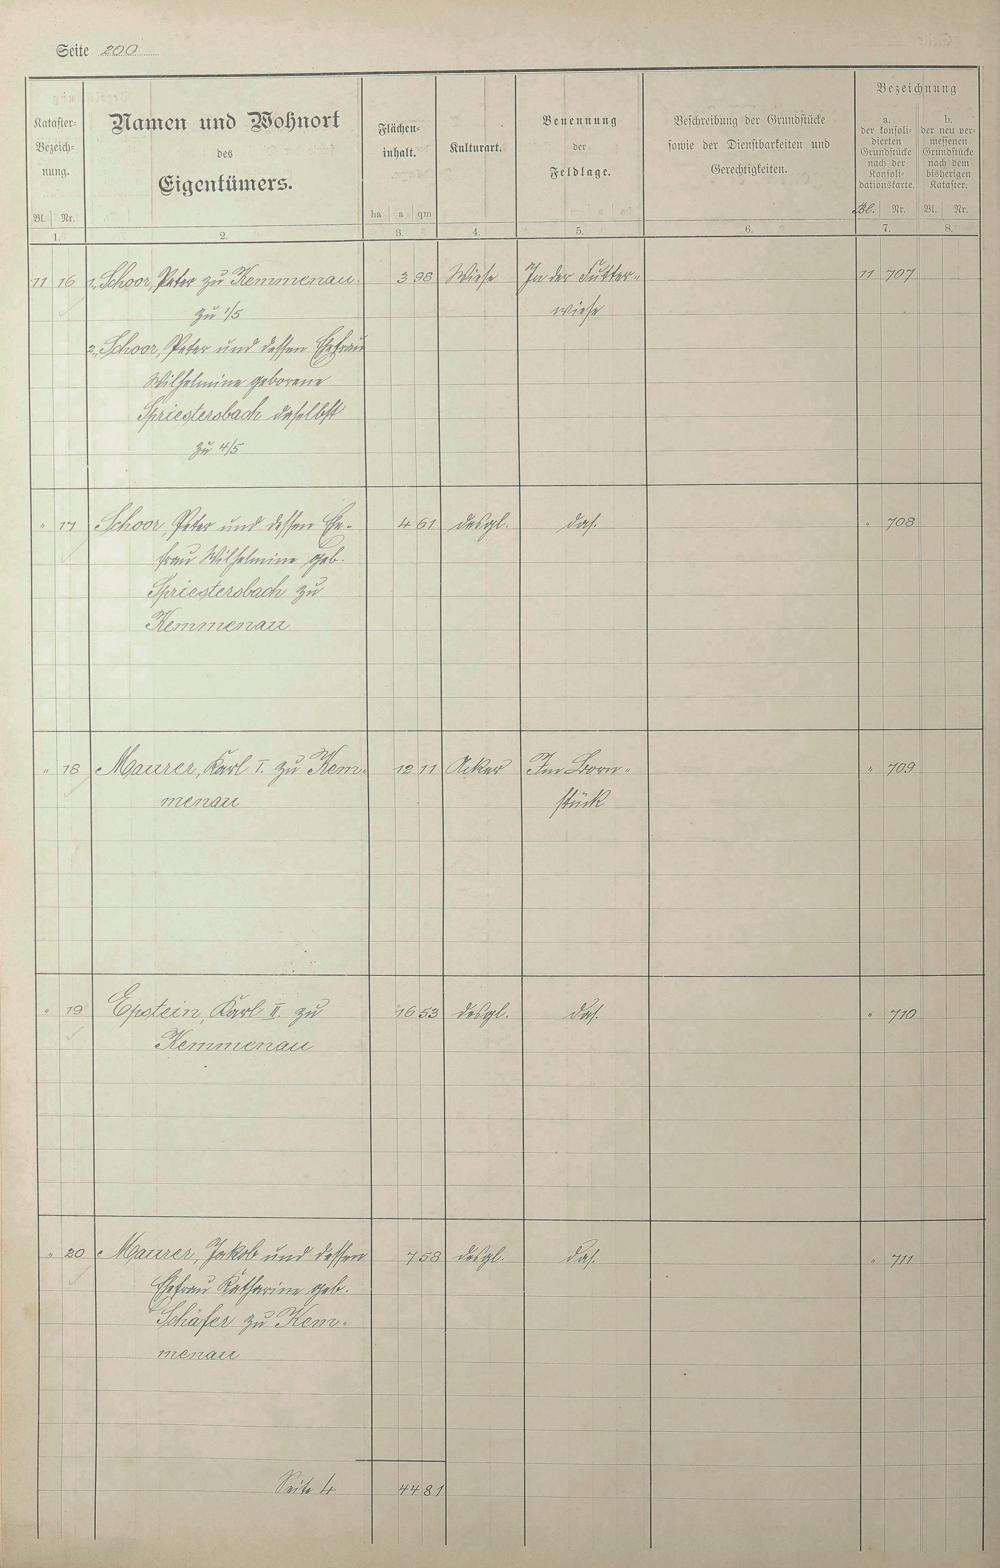 Seite 200
Kataster-
Bezeich-
nung.
Bl. Nr.
Namen und Wohnort
des
Eigentümers.
Flächen-
inhalt.
ha a qm
Kulturart.
Benennung
der
Feldlage.
Beschreibung der Grundstücke
sowie der Dienstbarkeiten und
Gerechtigkeiten.
Bezeichnung
a.
der konsoli-
dierten
Grundstücke
nach der
Konsoli-
dationskarte.
Bl. Nr.
b.
der neu ver-
messenen
Grundstücke
nach dem
bisherigen
Kataster.
Bl. Nr.
1. 2. 3. 4. 5. 6. 7. 8.
11 16 1, Schoor, Peter zu Kemmenau 3 98 Wiese In der Futter- 11 707
zu 1/5 wiese
2, Schoor, Peter und dessen Ehefrau
Wilhelmine geborene
Spriestersbach daselbst
zu 4/5
" 17 Schoor, Peter und dessen Ehe- 4 61 desgl. das. " 708
frau Wilhelmine geb.
Spriestersbach zu
Kemmenau
" 18 Maurer, Karl I. zu Kem- 12 11 Acker Im Born- " 709
menau stück
" 19 Epstein, Karl II. zu 16 53 desgl. das. " 710
Kemmenau
" 20 Maurer, Jakob und dessen 7 58 desgl. das. " 711
Ehefrau Katharine geb.
Schäfer zu Kem-
menau
Seite 4 44 81